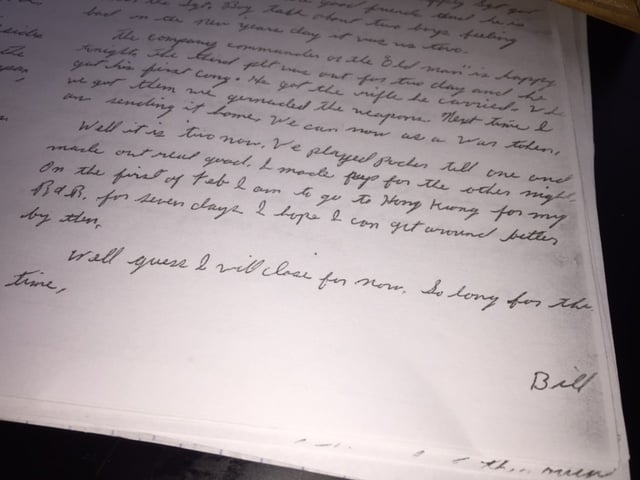 good friends and he is
the Sgt. Boy talk about two boys feeling
bad on the new years day it was us two.
The company commander or the "Old man" is happy
tonight. The third plt was out for two day and he
got his first cong. He got the rifle he carried.
we got them we grenaded the weapons. Next time I
am sending it home. We can now as a war token.
Well it is two now. I've played Pocker till one and
made out real good. I made pay for the other night.
On the first of Feb I am to go to Hong Kong for my
R & R. for seven days. I hope I can get around better
by then.
Well guess I will close for now. So long for the
time,
Bill